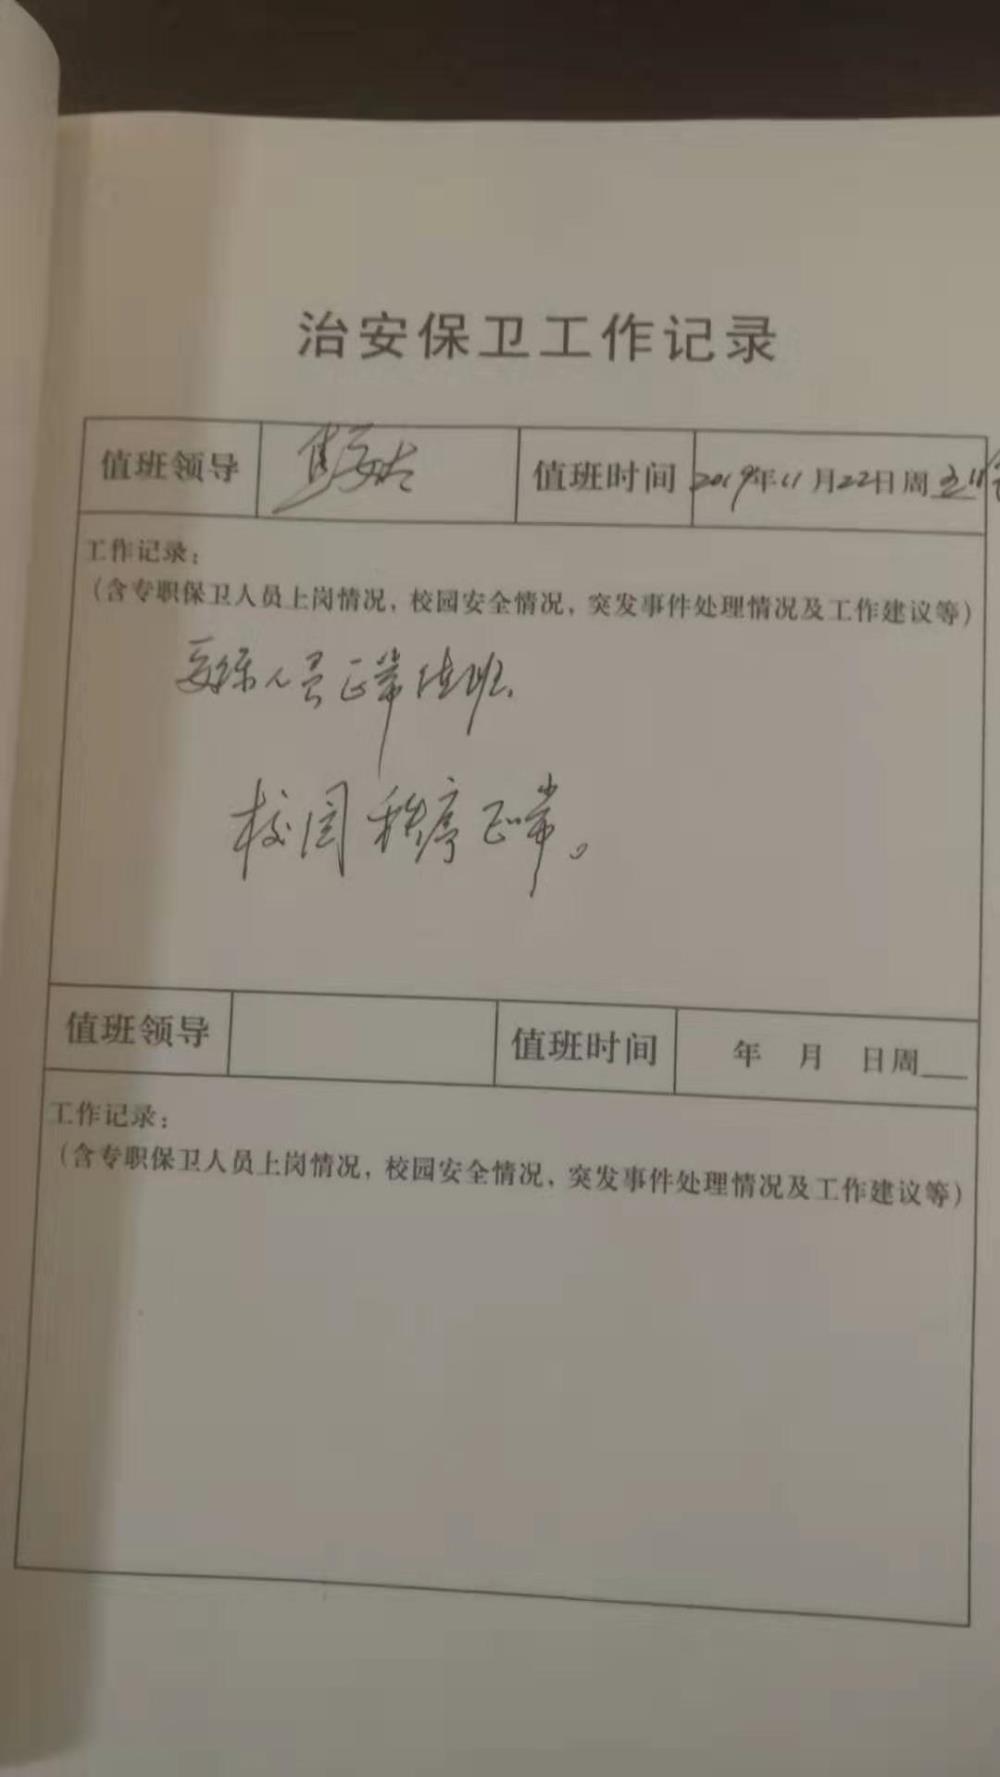 治安保卫工作记录
值班领导 值班时间 2019年11月22日周五
工作记录：
（含专职保卫人员上岗情况，校园安全情况，突发事件处理情况及工作建议等）
安保人员正常值班，
校园秩序正常。
值班领导 值班时间 年 月 日周
工作记录：
（含专职保卫人员上岗情况，校园安全情况，突发事件处理情况及工作建议等）